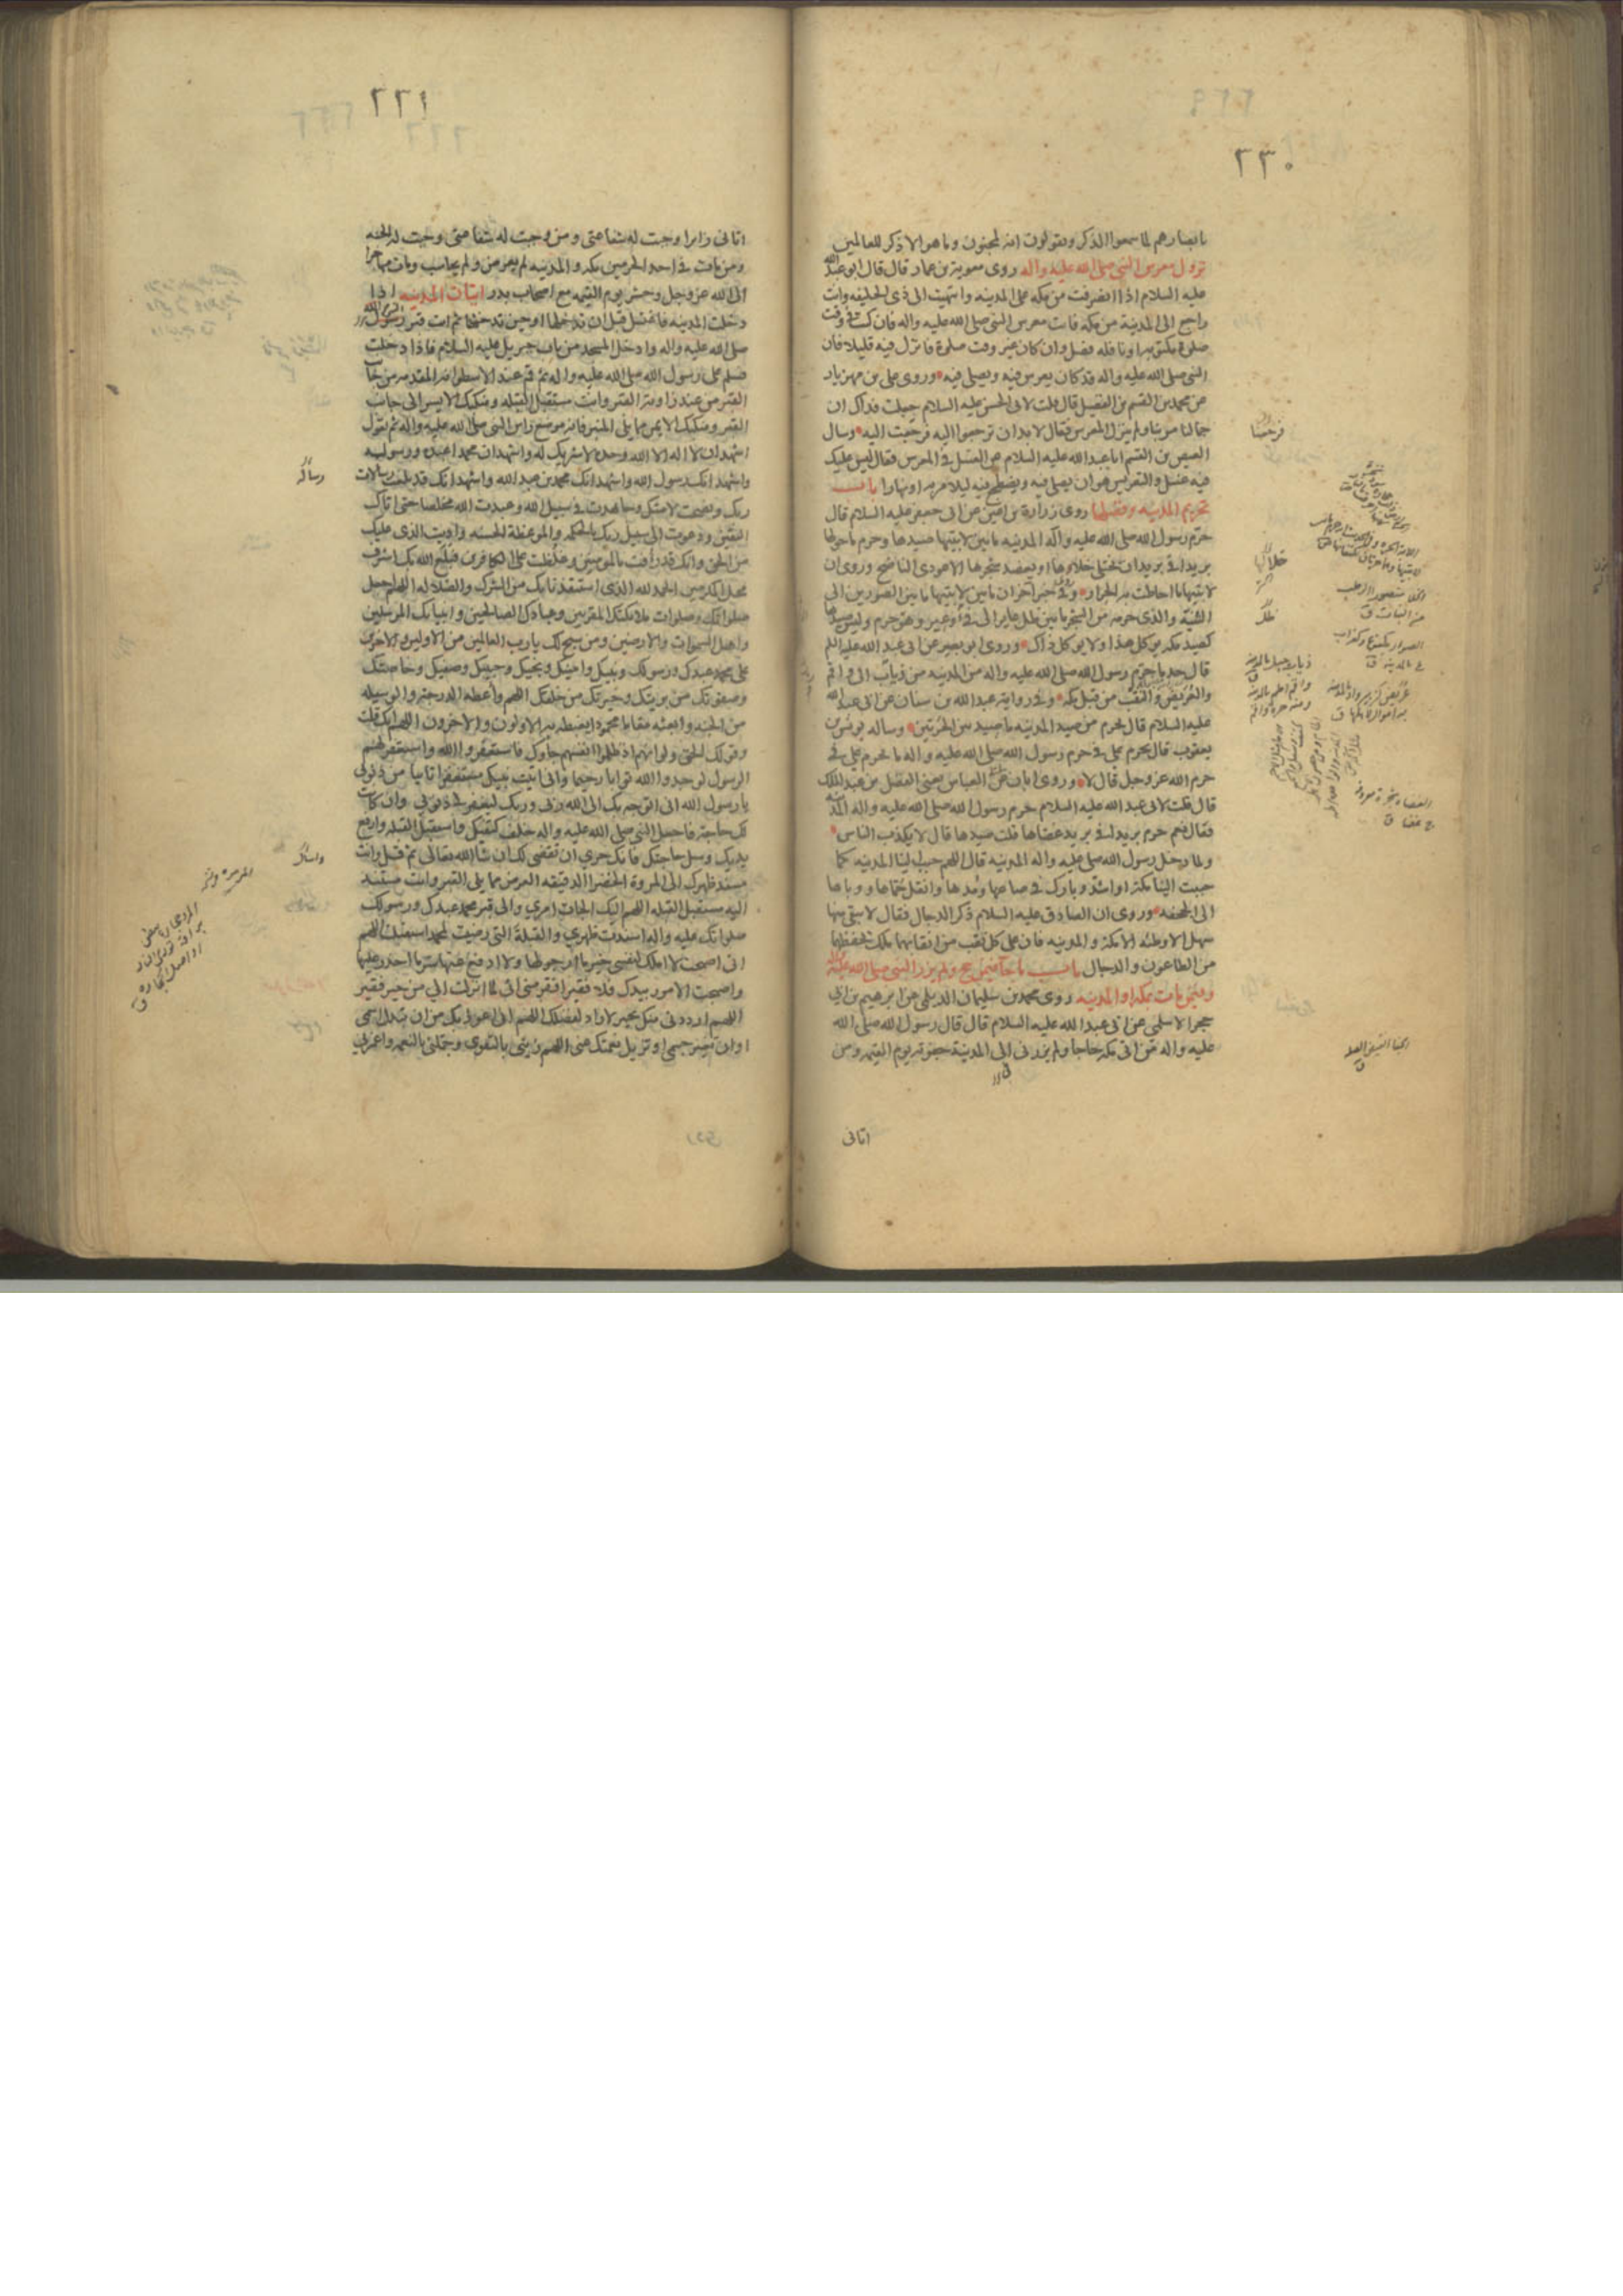 ٢٣٠
بابصارهم لما سمعوا الذكر ويقولون انه لمجنون وما هو الا ذكر للعالمين
نزول معرس النبي صلى الله عليه واله روى معوية بن عمار قال قال ابو عبد الله
عليه السلام اذا انصرفت من مكة الى المدينه وانتهيت الى ذى الحليفه وانت
راجع الى المدينة من مكه فات معرس النبي صلى الله عليه واله فان كنت في وقت
صلوة مكتوبه او نافله فصل وان كان غير وقت صلوة فانزل فيه قليلا فان
النبي صلى الله عليه واله قد كان يعرس فيه ويصلي فيه وروى علي بن مهزيار
عن محمد بن القسم بن الفضيل قال قلت لابي الحسن عليه السلام جعلت فداك ان
جمالنا مر بنا ولم ينزل المعرس فقال لا بد ان ترجعوا اليه فرجعت اليه وسال
العيص بن القسم ابا عبد الله عليه السلام عن الغسل في المعرس فقال ليس عليك
فيه غسل والتعريس هو ان يصلي فيه ويضطجع فيه ليلا مر به او نهارا باب
تحريم المدينه وفضلها روى زرارة بن اعين عن ابي جعفر عليه السلام قال
حرم رسول الله صلى الله عليه واله المدينه ما بين لابتيها صيدها وحرم ما حولها
بريدا في بريد ان يختلى خلاءها او يعضد شجرها الا عودي الناضح وروى ان
لابتيها ما احاطت به الحرار وفي خبر اخر ان ما بين لابتيها ما بين الصورين الى
الثنية والذى حرمه من الشجر ما بين ظل عاير الى فيء وعير وهو حرم وليس صيدها
كصيد مكه يوكل هذا ولا يوكل ذاك وروى ابو بصير عن ابي عبد الله عليه السلم
قال حد ما حرم رسول الله صلى الله عليه واله من المدينه من ذباب الى واقم
والعريض والنقب من قبل مكه وفي رواية عبد الله بن سنان عن ابي عبد الله
عليه السلام قال يحرم من صيد المدينه ما صيد بين الحرتين وساله يونس بن
يعقوب قال يحرم علي في حرم رسول الله صلى الله عليه واله ما يحرم علي في
حرم الله عز وجل قال لا وروى ابان عن ابي العباس يعني الفضل بن عبد الملك
قال قلت لابي عبد الله عليه السلام حرم رسول الله صلى الله عليه واله المدينه
فقال نعم حرم بريدا في بريد عضاها قلت صيدها قال لا يكذب الناس
ولما دخل رسول الله صلى عليه واله المدينه قال اللهم حبب الينا المدينه كما
حببت الينا مكة او اشد وبارك في صاعها ومدها وانقل حماها ووباها
الى الجحفه وروى ان الصادق عليه السلام ذكر الدجال فقال لا يبقى منها
سهل الا وطئه الا مكة والمدينه فان على كل نقب من انقابها ملك يحفظها
من الطاعون والدجال باب ما جا فيمن حج ولم يزر النبي صلى الله عليه
وفيمن مات بمكه او المدينه روى محمد بن سليمان الديلمي عن ابرهيم بن ابي
حجر الاسلمي عن ابي عبد الله عليه السلام قال قال رسول الله صلى الله
عليه واله من اتى مكه حاجا ولم يزرني الى المدينة جفوته يوم القيمه ومن
اتاني
٢٢١
اتاني زايرا وجبت له شفاعتي ومن وجبت له شفاعتي وجبت له الجنه
ومن مات في احد الحرمين مكه والمدينه لم يعرض ولم يحاسب ومات مهاجرا
الى الله عز وجل وحشر يوم القيمه مع اصحاب بدر اتيان المدينه اذا
دخلت المدينه فاغتسل قبل ان تدخلها او حين تدخلها ثم ات قبر رسول الله
صلى الله عليه واله وادخل المسجد من باب جبريل عليه السلام فاذا دخلت
فسلم على رسول الله صلى الله عليه واله ثم قم عند الاسطوانه المقدمه من جانب
القبر من عند زاويه القبر وانت مستقبل القبله ومنكبك الايسر الى جانب
القبر ومنكبك الايمن مما يلي المنبر فانه موضع راس النبي صلى الله عليه واله ثم تقول
اشهد ان لا اله الا الله وحده لا شريك له واشهد ان محمدا عبده ورسوله
واشهد انك رسول الله واشهد انك محمد بن عبد الله واشهد انك قد بلغت رسالات
ربك ونصحت لامتك وجاهدت في سبيل الله وعبدت الله مخلصا حتى اتاك
اليقين ودعوت الى سبيل ربك بالحكمه والموعظة الحسنه واديت الذى عليك
من الحق وانك قد رأفت بالمومنين وغلظت على الكافرين فبلغ الله بك اشرف
محل المكرمين الحمد لله الذى استنقذنا بك من الشرك والضلاله اللهم اجعل
صلواتك وصلوات ملائكتك المقربين وعبادك الصالحين وانبيائك المرسلين
واهل السموات والارضين ومن سبح لك يا رب العالمين من الاولين والاخرين
على محمد عبدك ورسولك ونبيك وامينك ونجيك وحبيبك وصفيك وخاصتك
وصفوتك من بريتك وخيرتك من خلقك اللهم وأعطه الدرجة والوسيله
من الجنه وابعثه مقاما محمودا يغبطه به الاولون والاخرون اللهم انك قلت
وقولك الحق ولو انهم اذ ظلموا انفسهم جاوك فاستغفروا الله واستغفر لهم
الرسول لوجدوا الله توابا رحيما واني اتيت نبيك مستغفرا تايبا من ذنوبي
يا رسول الله اني اتوجه بك الى الله ربي وربك ليغفر لي ذنوبي وان كانت
لك حاجة فاجعل النبي صلى الله عليه واله خلف كتفيك واستقبل القبله وارفع
يديك وسل حاجتك فانك حري ان تقضى لك ان شا الله تعالى ثم قل وانت
مسند ظهرك الى المروة الخضرا الدقيقه العرض مما يلي القبر وانت مسند
اليه مستقبل القبله اللهم اليك الجات امري والى قبر محمد عبدك ورسولك
صلواتك عليه واله اسندت ظهري والقبلة التي رضيت لمحمد استقبلت اللهم
اني اصبحت لا املك لنفسي خير ما ارجو لها ولا ادفع عنها شر ما احذر عليها
واصبحت الامور بيدك فلا فقير افقر مني اني لما انزلت الي من خير فقير
اللهم ارددني منك بخير لا راد لفضلك اللهم اني اعوذ بك من ان تبدل اسمي
او ان تغير جسمي او تزيل نعمتك عني اللهم زيني بالتقوى وجملني بالنعمه واغمرني